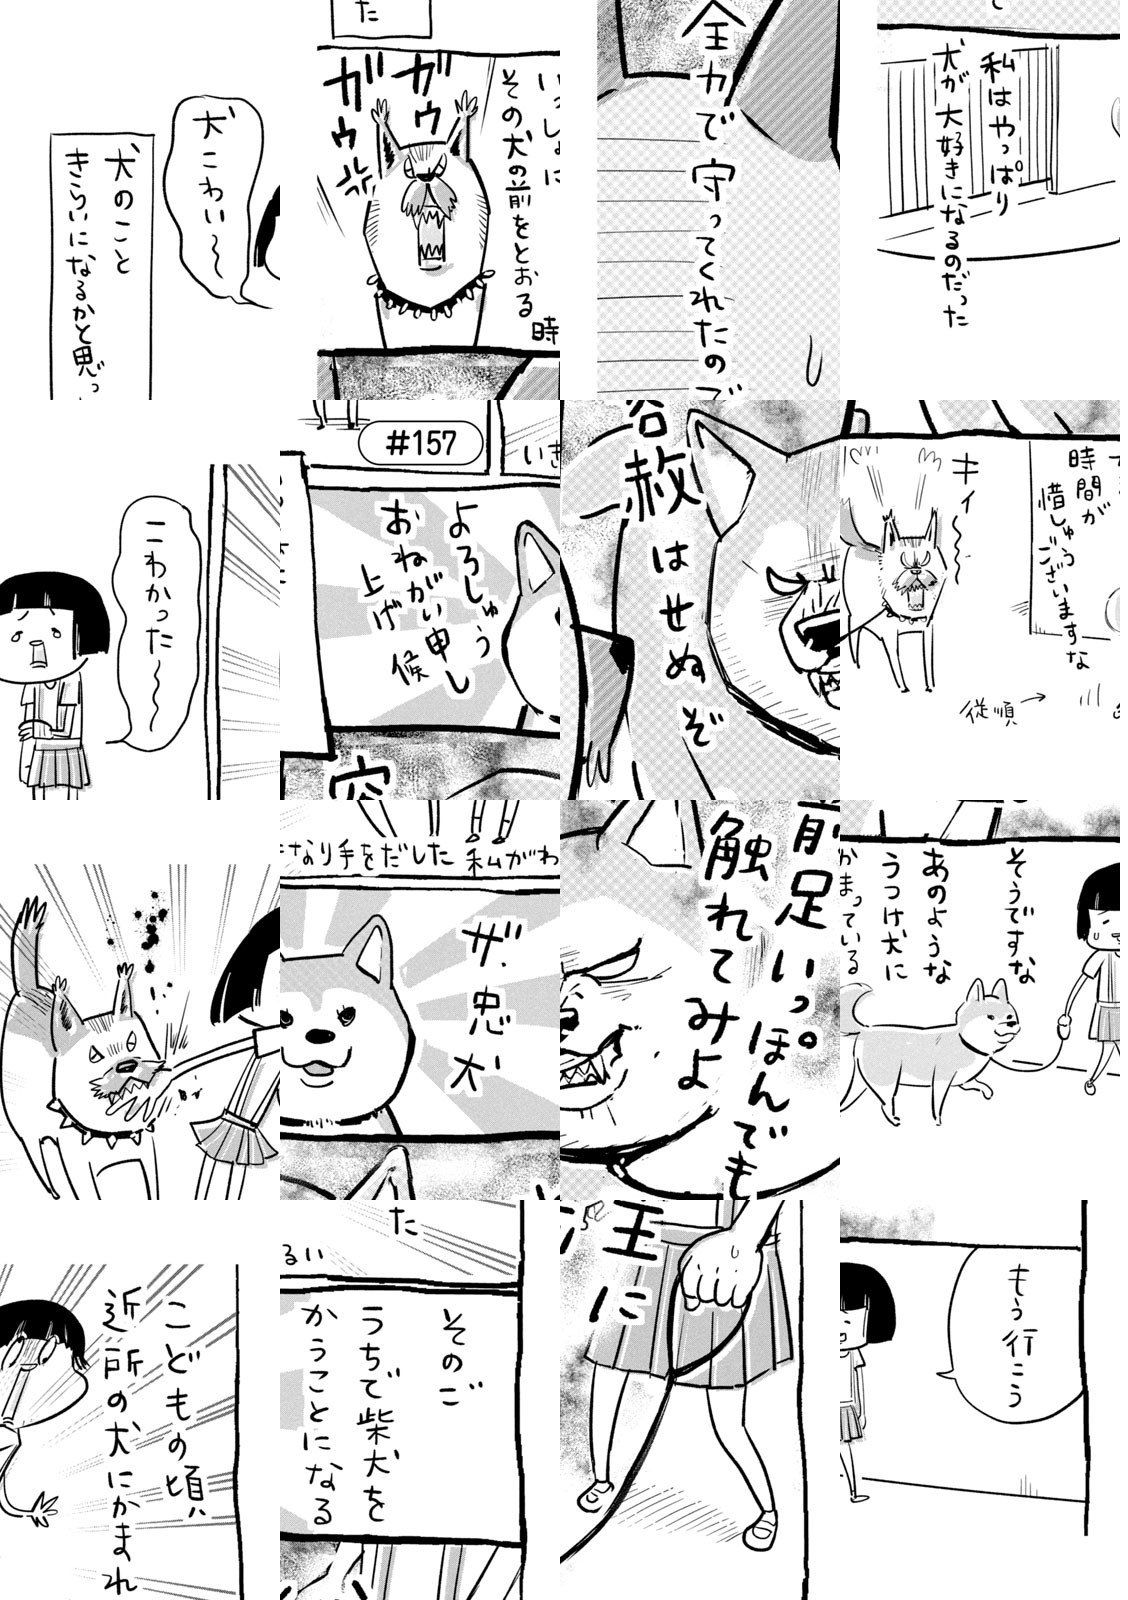 犬こわい〜
犬のこと
きらいになるかと思っ
た
いっしょに
その犬の前をとおる
時
ガウ
ガウ
全力で守ってくれたので
私はやっぱり
犬が大好きになるのだった
こわかった〜
#157
いき
よろしゅう
おねがい申し
上げ
候
容
容赦はせぬぞ
時間が
惜しゅう
ございますな
キィ〜
従順→
なり手をだした 私がわ
ザ・忠犬
前足いっぽんでも
触れてみよ
そうですな
あのような
うつけ犬に
かまっている
こどもの頃
近所の犬にかまれ
た
るい
そのご
うちで柴犬を
かうことになる
主に
もう行こう